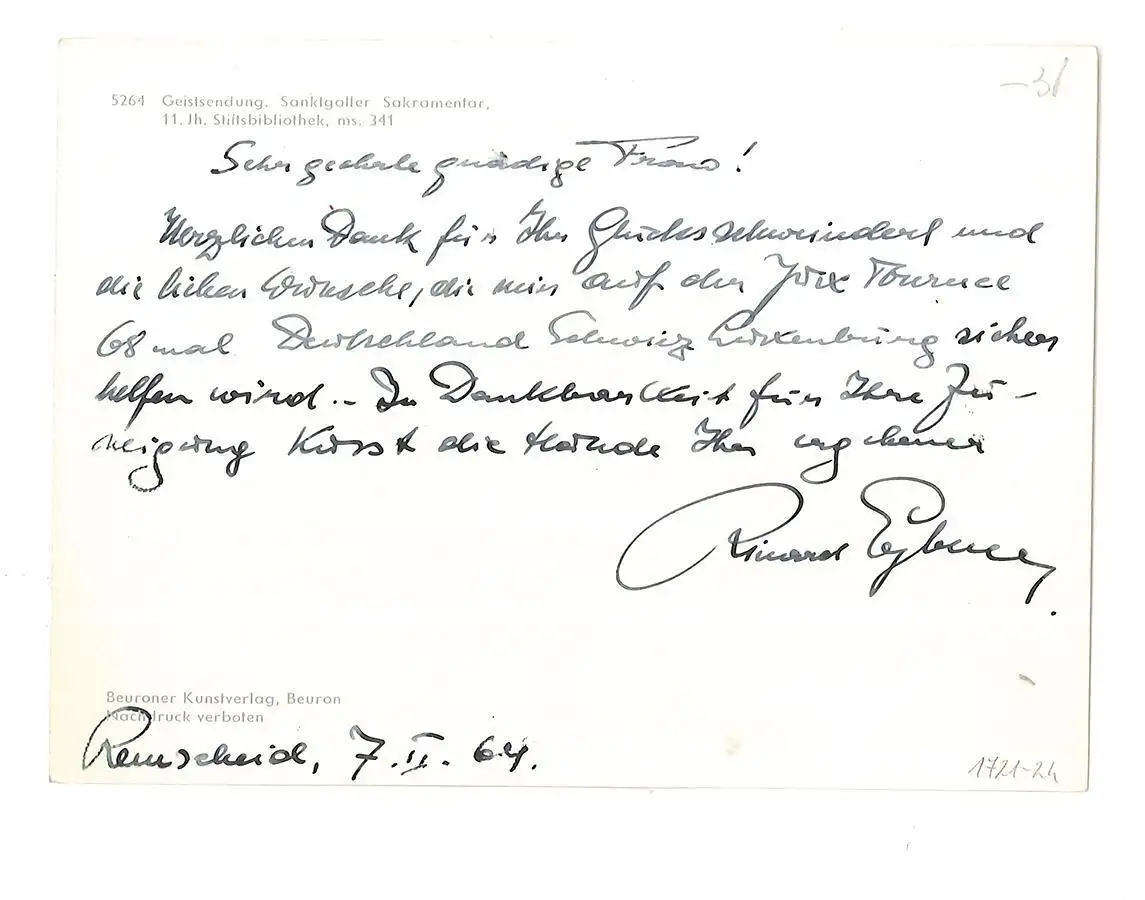 5264 Geistsendung. Sanktgaller Sakramentar,
11. Jh. Stiftsbibliothek, ms. 341
Sehr geehrte gnädige Frau!
Herzlichen Dank für Ihr Glücksschweinderl und
die lieben Wünsche, die mir auf der Jux Tournee
68 mal Deutschland Schweiz Luxenburg sicher
helfen wird. - In Dankbarkeit für Ihre Zu-
neigung küsst die Hände Ihr ergebener
Richard Eybner.
Beuroner Kunstverlag, Beuron
Nachdruck verboten
Remscheid, 7. II. 64.
1721-24